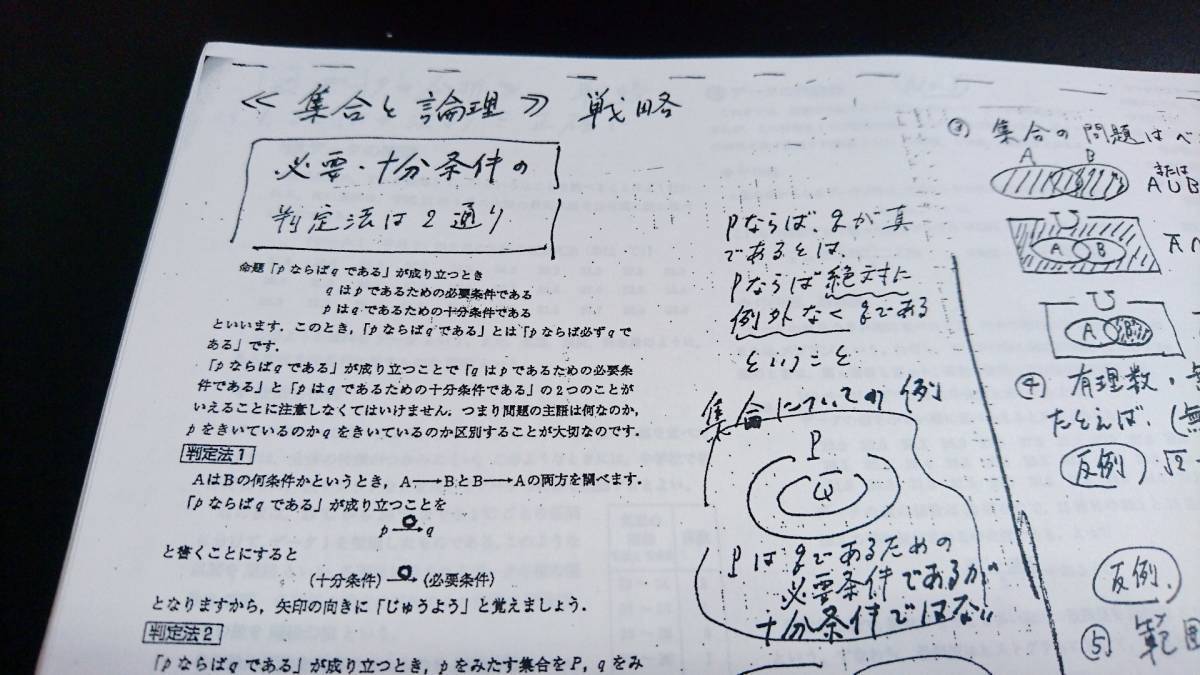 ≪集合と論理≫ 戦略
必要・十分条件の
判定法は2通り
命題「pならばqである」が成り立つとき
qはpであるための必要条件である
pはqであるための十分条件である
といいます.このとき,「pならばqである」とは「pならば必ずqで
ある」です.
「pならばqである」が成り立つことで「qはpであるための必要条
件である」と「pはqであるための十分条件である」の2つのことが
いえることに注意しなくてはいけません.つまり問題の主語は何なのか,
pをきいているのかqをきいているのか区別することが大切なのです.
判定法1
AはBの何条件かというとき,A→BとB→Aの両方を調べます.
「pならばqである」が成り立つことを
p→q
と書くことにすると
(十分条件)→(必要条件)
となりますから,矢印の向きに「じゅうよう」と覚えましょう.
判定法2
「pならばqである」が成り立つとき,pをみたす集合をP,qをみ
Pならば、qが真
であるとは
Pならば絶対に
例外なくqである
ということ
集合についての例
P
Q
Pはqであるための
必要条件であるが
十分条件ではない
③ 集合の問題はベ
A B
または
A∪B
U
A B
U
A
④ 有理数・
たとえば、(無
反例 √2
反例.
⑤ 範囲